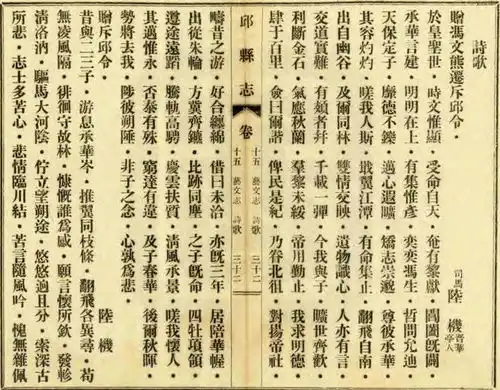 詩歌
贈馮文熊遷斥邱令・司馬陸機晉華亭人
於皇聖世・時文惟顯・受命自天・奄有黎獻・閶闔既闢・
承華言建・明明在上・有集惟彥・奕奕馮生・哲問允迪・
天保定子・靡德不鑠・邁心遐曠・矯志崇邈・尊彼承華・
其容灼灼・嗟我人斯・戢翼江潭・有命集止・翻飛自南・
出自幽谷・及爾同林・雙情交映・遺物識心・人亦有言・
交道實難・有頍者弁・千載一彈・今我與子・曠世齊歡・
利斷金石・氣應秋蘭・羣黎未綏・帝用勤止・我求明德・
肆于百里・僉曰爾諧・俾民是紀・乃眷北徂・對揚帝祉・
邱縣志
卷
十五 藝文志 詩歌 三十二
十五 藝文志 詩歌 三十二
疇昔之游・好合纏綿・借曰未洽・亦既三年・居陪華幄・
出從朱輪・方驥齊鑣・比跡同塵・之子既命・四牡項領・
遵途遠蹈・騰軌高騁・慶雲扶質・清風承景・嗟我懷人・
其邁惟永・否泰有殊・窮達有違・及子春華・後爾秋暉・
勢將去我・陟彼朔陲・非子之念・心孰為悲・
贈斥邱令・陸機
昔與二三子・游息承華岑・推翼同枝條・翻飛各異尋・苟
無凌風翮・徘徊守故林・慷慨誰為感・願言懷所欽・發軫
清洛汭・驅馬大河陰・佇立望朔途・悠悠迥且分・索深古
所悲・志士多苦心・悲情臨川結・苦言隨風吟・愧無雜佩